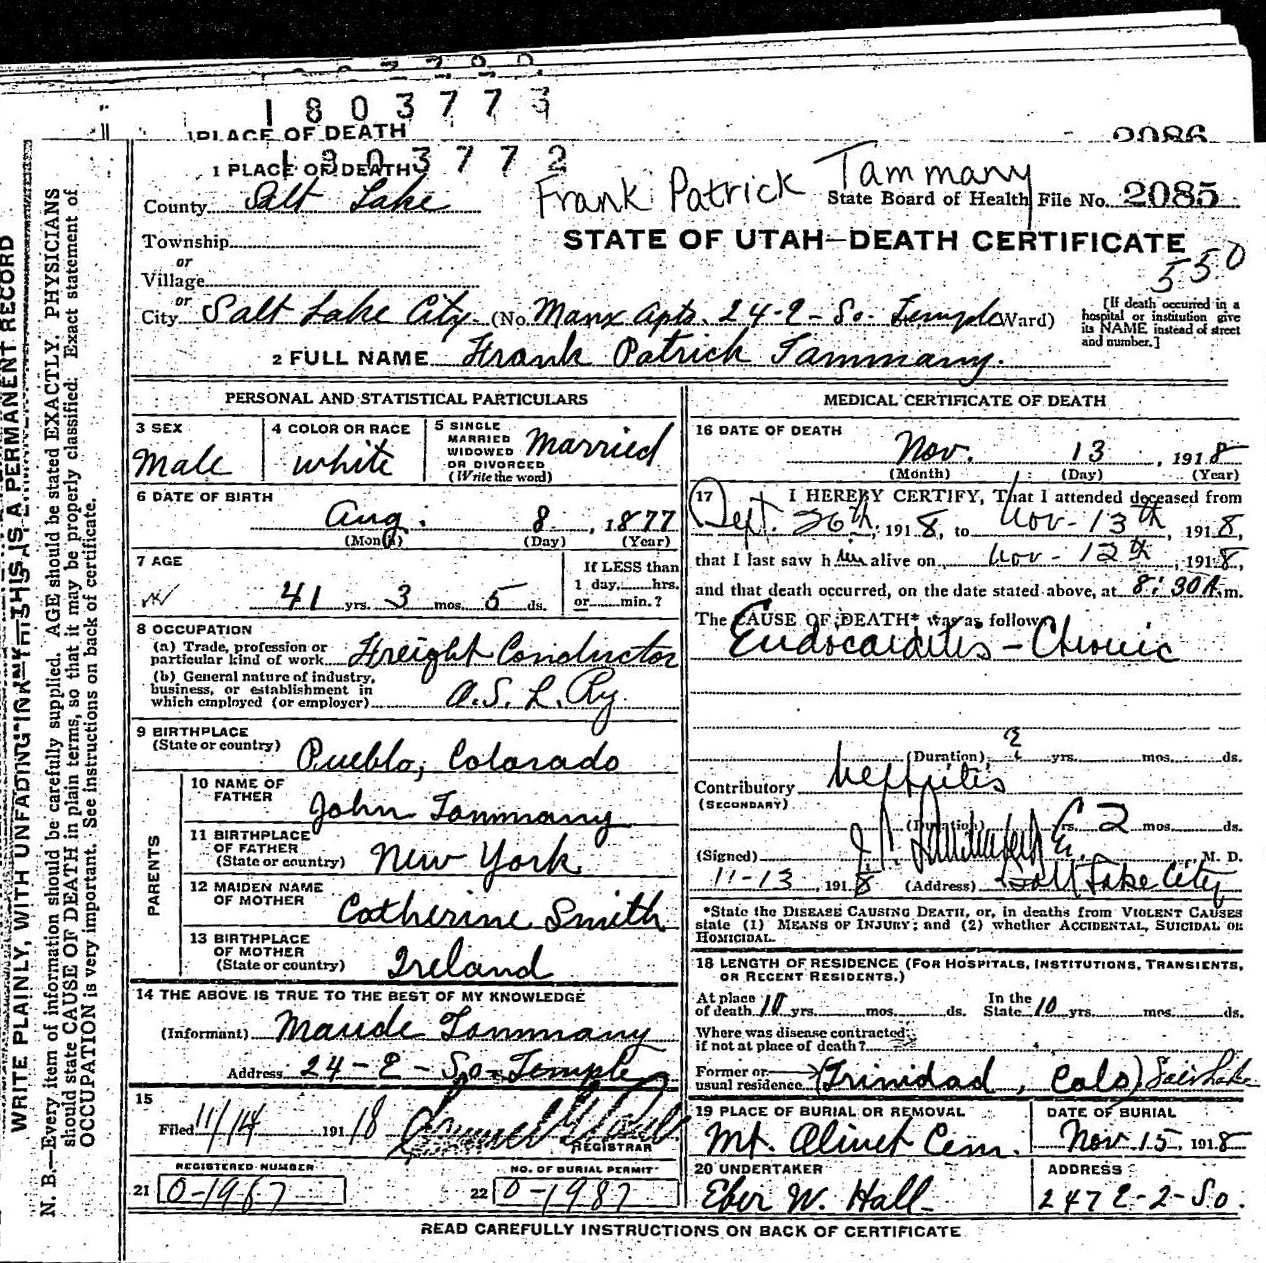 1803773
PLACE OF DEATH
2086
1803772
1 PLACE OF DEATH
Frank Patrick Tammany
County Salt Lake
State Board of Health File No. 2085
Township
STATE OF UTAH—DEATH CERTIFICATE
or
Village
550
or
City Salt Lake City (No. Manx Apts. 24-E-So. Temple Ward)
[If death occurred in a
hospital or institution give
its NAME instead of street
and number.]
2 FULL NAME Frank Patrick Tammany.
PERSONAL AND STATISTICAL PARTICULARS
3 SEX
Male
4 COLOR OR RACE
white
5 SINGLE
MARRIED
WIDOWED
OR DIVORCED
(Write the word)
Married
6 DATE OF BIRTH
Aug. 8, 1877
(Month) (Day) (Year)
7 AGE
41 yrs. 3 mos. 5 ds.
If LESS than
1 day, hrs.
or min.?
8 OCCUPATION
(a) Trade, profession or
particular kind of work Freight Conductor
(b) General nature of industry,
business, or establishment in
which employed (or employer) O.S.L. Ry.
9 BIRTHPLACE
(State or country) Pueblo, Colorado
PARENTS
10 NAME OF
FATHER John Tammany
11 BIRTHPLACE
OF FATHER
(State or country) New York
12 MAIDEN NAME
OF MOTHER Catherine Smith
13 BIRTHPLACE
OF MOTHER
(State or country) Ireland
14 THE ABOVE IS TRUE TO THE BEST OF MY KNOWLEDGE
(Informant) Maude Tammany
Address 24-E-So-Temple
15
Filed 11/14 191 18
REGISTRAR
REGISTERED NUMBER
21 0-1987
NO. OF BURIAL PERMIT
22 0-1987
MEDICAL CERTIFICATE OF DEATH
16 DATE OF DEATH
Nov. 13, 1918
(Month) (Day) (Year)
17 I HEREBY CERTIFY, That I attended deceased from
Sept. 26th, 1918, to Nov-13th, 1918,
that I last saw him alive on Nov-12th, 1918,
and that death occurred, on the date stated above, at 8:30A m.
The CAUSE OF DEATH* was as follows:
Endocarditis-Chronic
(Duration) 2 yrs. mos. ds.
Contributory Nephritis
(SECONDARY)
(Duration) yrs. 2 mos. ds.
(Signed) M. D.
11-13, 1918 (Address) Salt Lake City
*State the DISEASE CAUSING DEATH, or, in deaths from VIOLENT CAUSES
state (1) MEANS OF INJURY; and (2) whether ACCIDENTAL, SUICIDAL OR
HOMICIDAL.
18 LENGTH OF RESIDENCE (FOR HOSPITALS, INSTITUTIONS, TRANSIENTS,
OR RECENT RESIDENTS.)
At place
of death 10 yrs. mos. ds.
In the
State 10 yrs. mos. ds.
Where was disease contracted
if not at place of death?
Former or
usual residence (Trinidad, Colo) Salt Lake
19 PLACE OF BURIAL OR REMOVAL
Mt. Olivet Cem.
DATE OF BURIAL
Nov. 15, 1918
20 UNDERTAKER
Eber W. Hall
ADDRESS
247 E-2-So.
READ CAREFULLY INSTRUCTIONS ON BACK OF CERTIFICATE
WRITE PLAINLY, WITH UNFADING INK—THIS IS A PERMANENT RECORD
N. B.—Every item of information should be carefully supplied. AGE should be stated EXACTLY. PHYSICIANS
should state CAUSE OF DEATH in plain terms, so that it may be properly classified. Exact statement of
OCCUPATION is very important. See instructions on back of certificate.